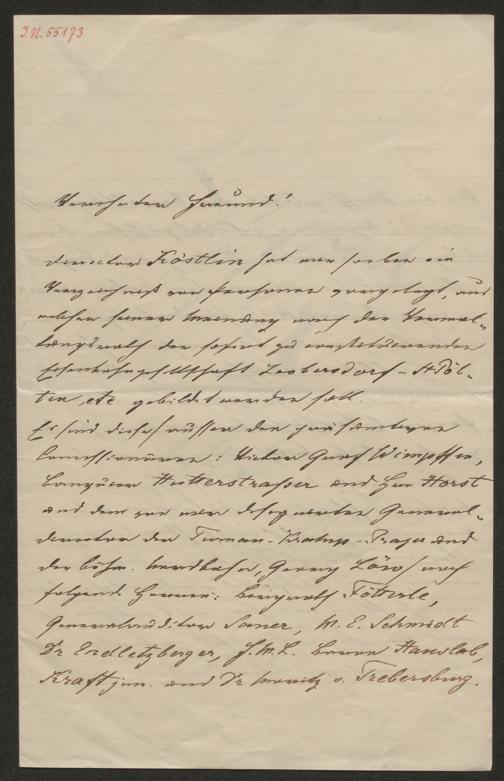 I.N. 55173
Verehrter Freund!
Director Köstlin hat mir soeben ein
Verzeichniß von Personen vorgelegt, aus
welchen seiner Meinung nach der Verwal-
tungsrath der sofort zu constituirenden
Eisenbahngesellschaft Leobersdorf-St. Pöl-
ten, etc gebildet werden soll.
Es sind dieses außer den gräflichen
Concessionären: Victor Graf Wimpffen,
Banquier Hutterstrasser und Herr Horst
und dem von mir designirten General-
director der Turnau-Kralup-Prager und
der böhm. Nordbahn, Georg Löw/ noch
folgende Herren: Bergrath Fötterle,
Generalauditor Soner, M. E. Schmidt
Dr Endletzberger, F.M.L. Baron Hauslab,
Kraft jun. und Dr Moritz v. Trebersburg.